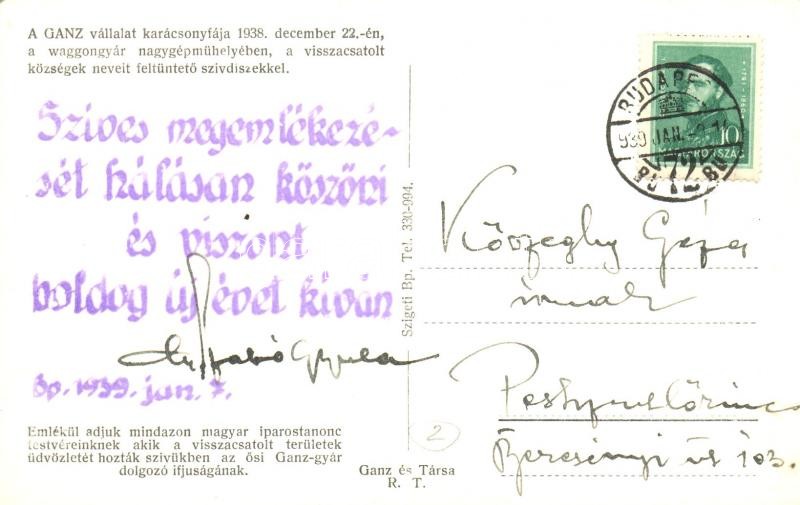 A GANZ vállalat karácsonyfája 1938. december 22.-én,
a waggongyár nagygépmühelyében, a visszacsatolt
községek neveit feltüntető szivdiszekkel.
Szives megemlékezé-
sét hálásan köszöni
és viszont
boldog új évet kíván
Szabó Gyula
Bp. 1939. jan. 7.
Emlékül adjuk mindazon magyar iparostanonc
testvéreinknek akik a visszacsatolt területek
üdvözletét hozták szivükben az ősi Ganz-gyár
dolgozó ifjuságának.
Szigeti Bp. Tel. 330-994.
Ganz és Társa
R. T.
2
BUDAPEST
939 JAN
72
10
MAGYARORSZÁG
Kőszeghy Géza
úrnak
Pestszentlőrinc
Bercsényi út 103.